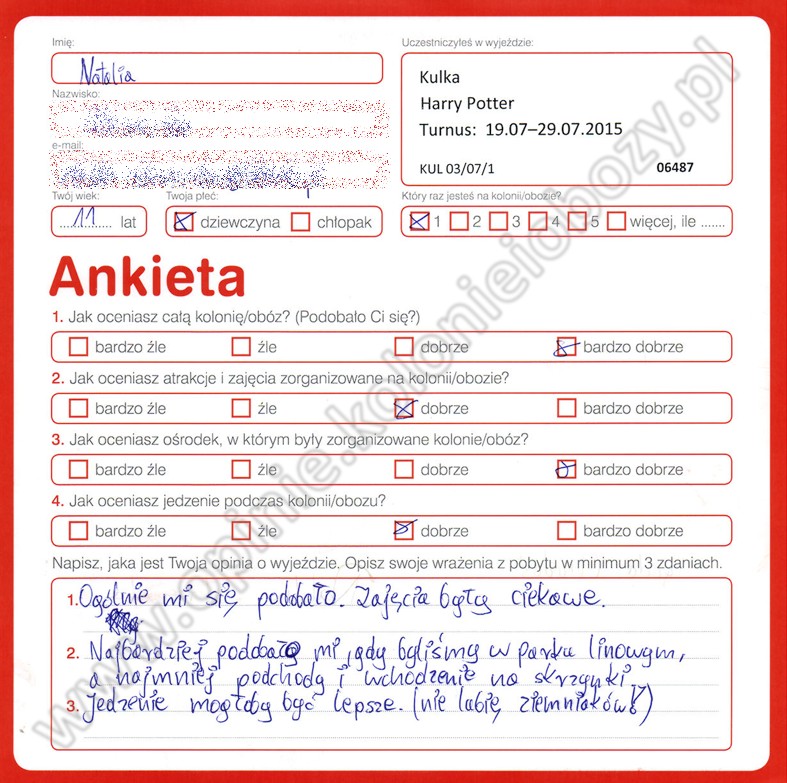 Imię:
Natalia
Nazwisko:
e-mail:
Twój wiek:
11 lat
Twoja płeć:
dziewczyna chłopak
Uczestniczyłeś w wyjeździe:
Kulka
Harry Potter
Turnus: 19.07–29.07.2015
KUL 03/07/1 06487
Który raz jesteś na kolonii/obozie?
1 2 3 4 5 więcej, ile .......
Ankieta
1. Jak oceniasz całą kolonię/obóz? (Podobało Ci się?)
bardzo źle źle dobrze bardzo dobrze
2. Jak oceniasz atrakcje i zajęcia zorganizowane na kolonii/obozie?
bardzo źle źle dobrze bardzo dobrze
3. Jak oceniasz ośrodek, w którym były zorganizowane kolonie/obóz?
bardzo źle źle dobrze bardzo dobrze
4. Jak oceniasz jedzenie podczas kolonii/obozu?
bardzo źle źle dobrze bardzo dobrze
Napisz, jaka jest Twoja opinia o wyjeździe. Opisz swoje wrażenia z pobytu w minimum 3 zdaniach.
1. Ogólnie mi się podobało. Zajęcia były ciekawe.
2. Najbardziej podobało mi, gdy byliśmy w parku linowym,
a najmniej podchody i wchodzenie na skrzynki.
3. Jedzenie mogłoby być lepsze. (nie lubię ziemniaków!)
www.opinie.kolonieiobozy.pl